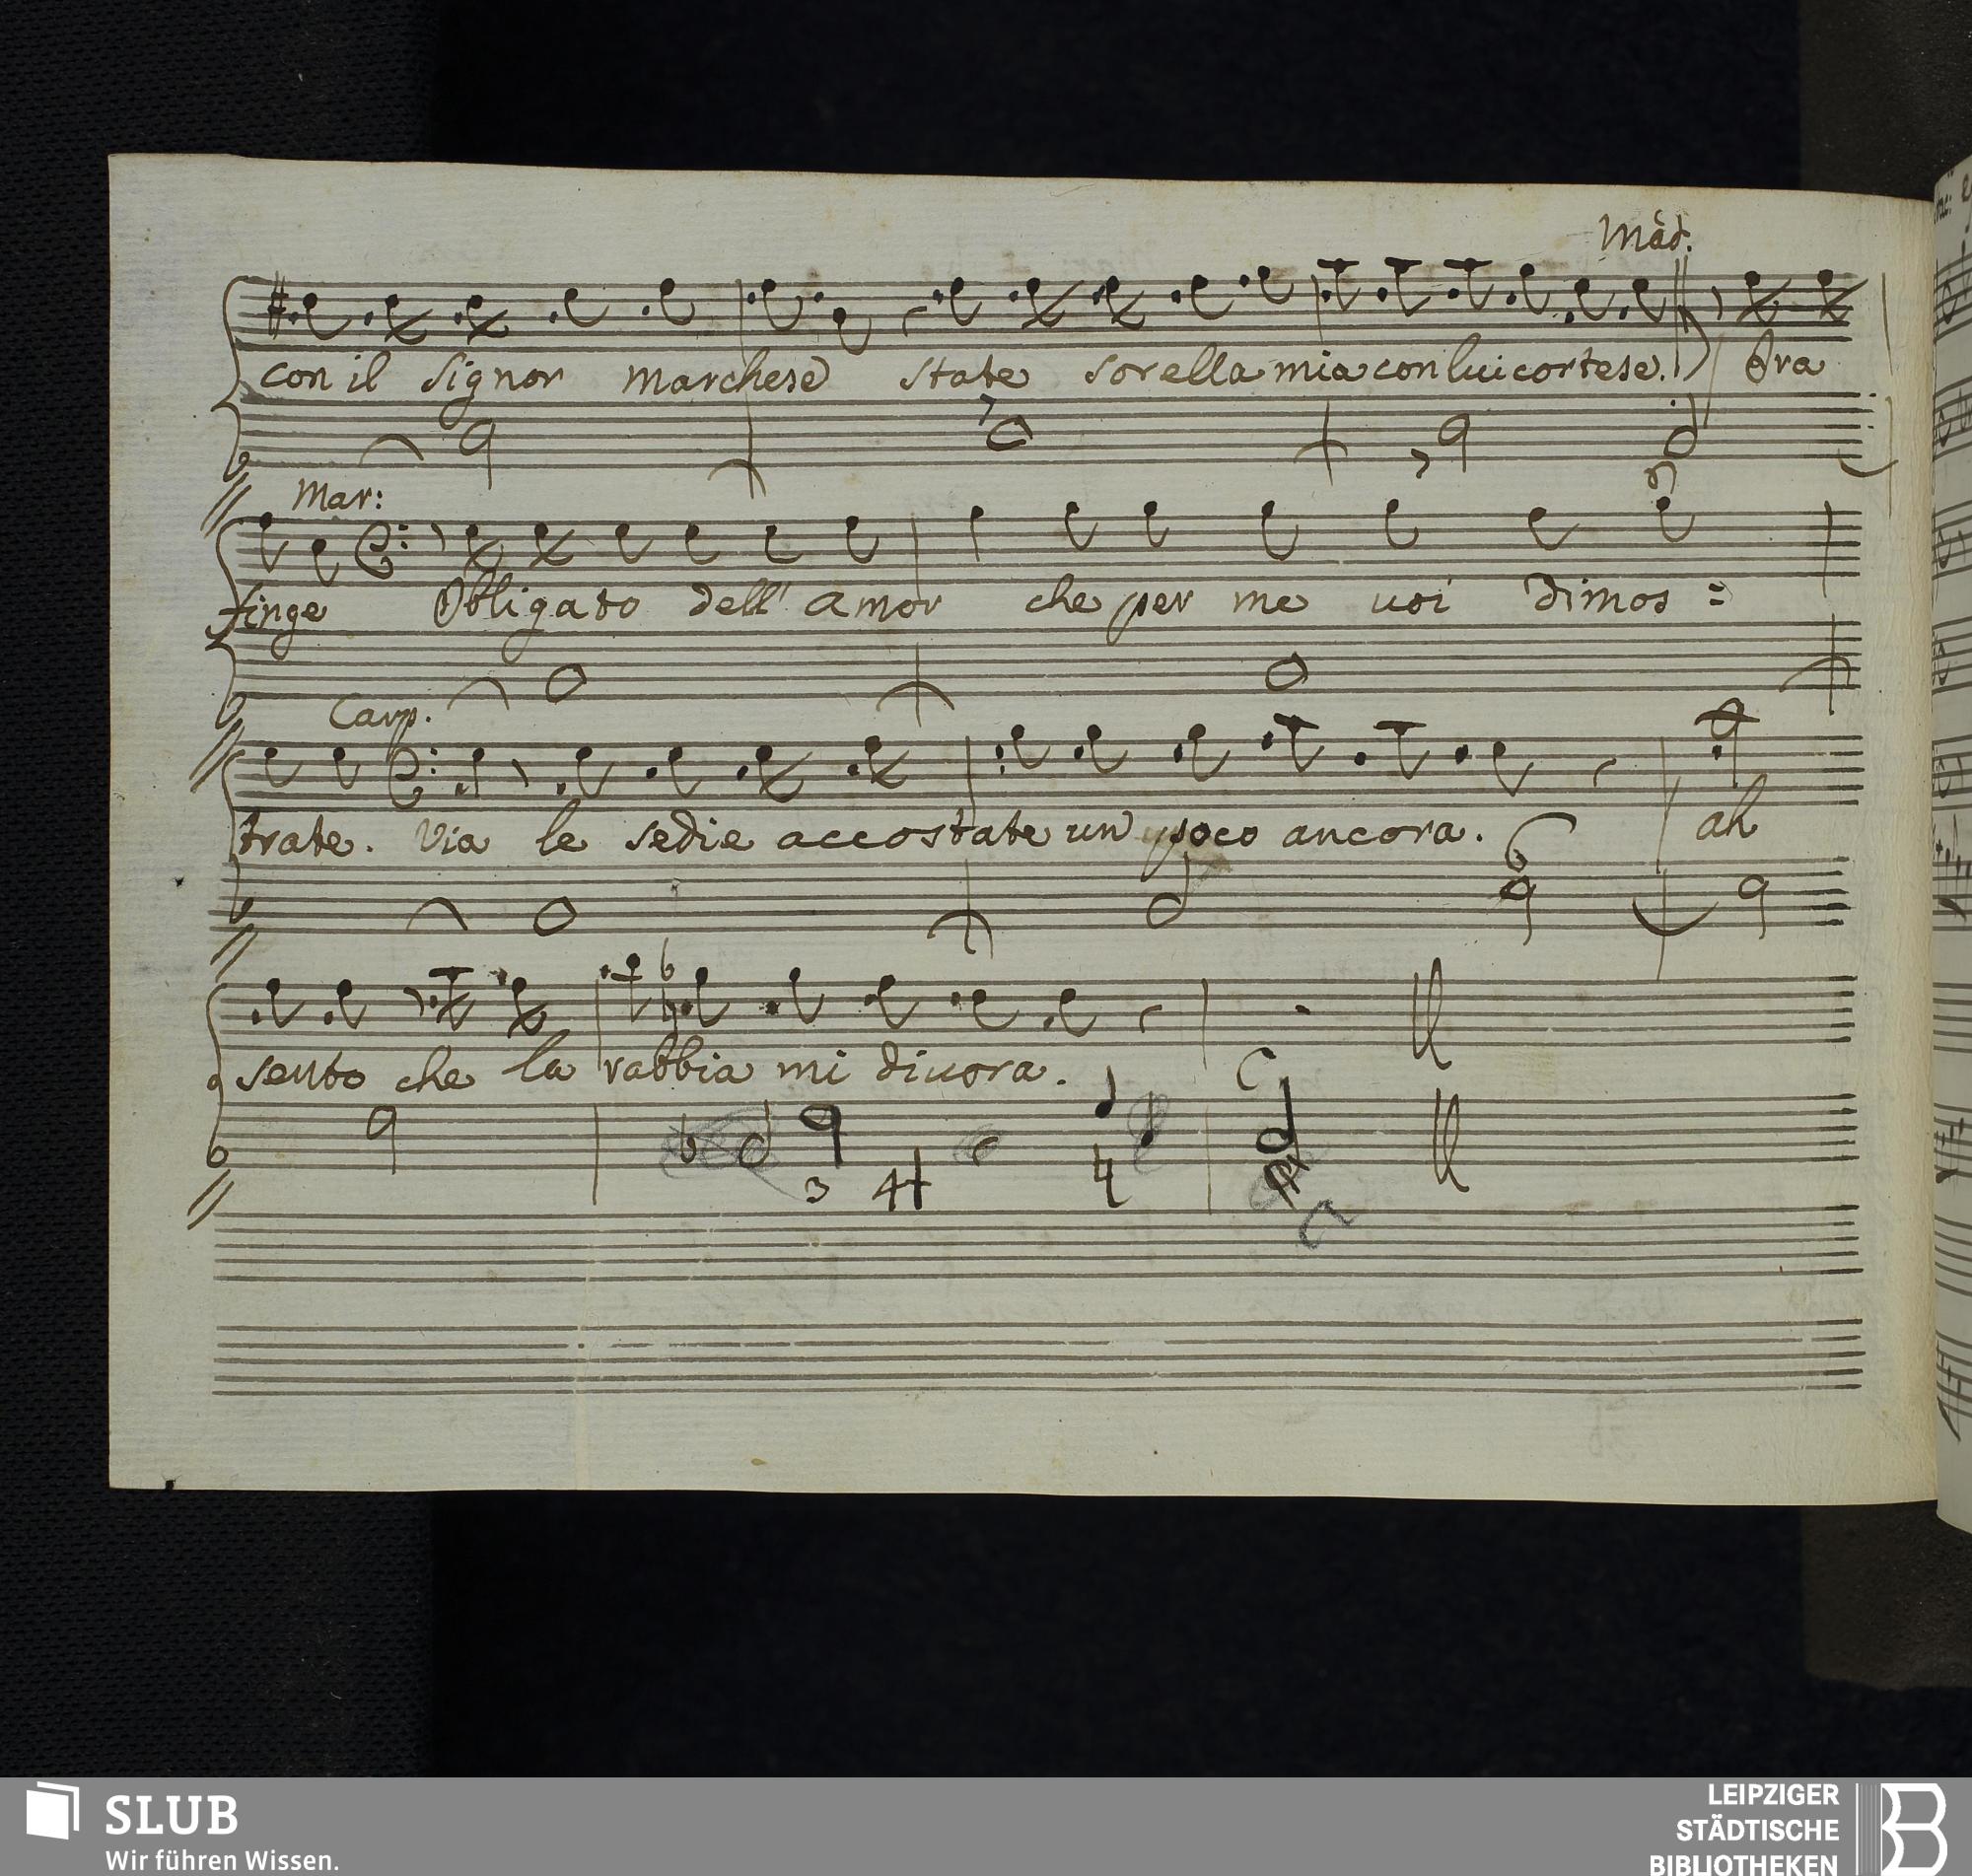 Mad.
con il Signor marchese state sorella mia con lui cortese. Ora
Mar:
finge Obligato dell' amor che per me voi dimos =
Carp.
trate. Via le sedie accostate un poco ancora. ah
sento che la rabbia mi divora.
SLUB
Wir führen Wissen.
LEIPZIGER
STÄDTISCHE
BIBLIOTHEKEN